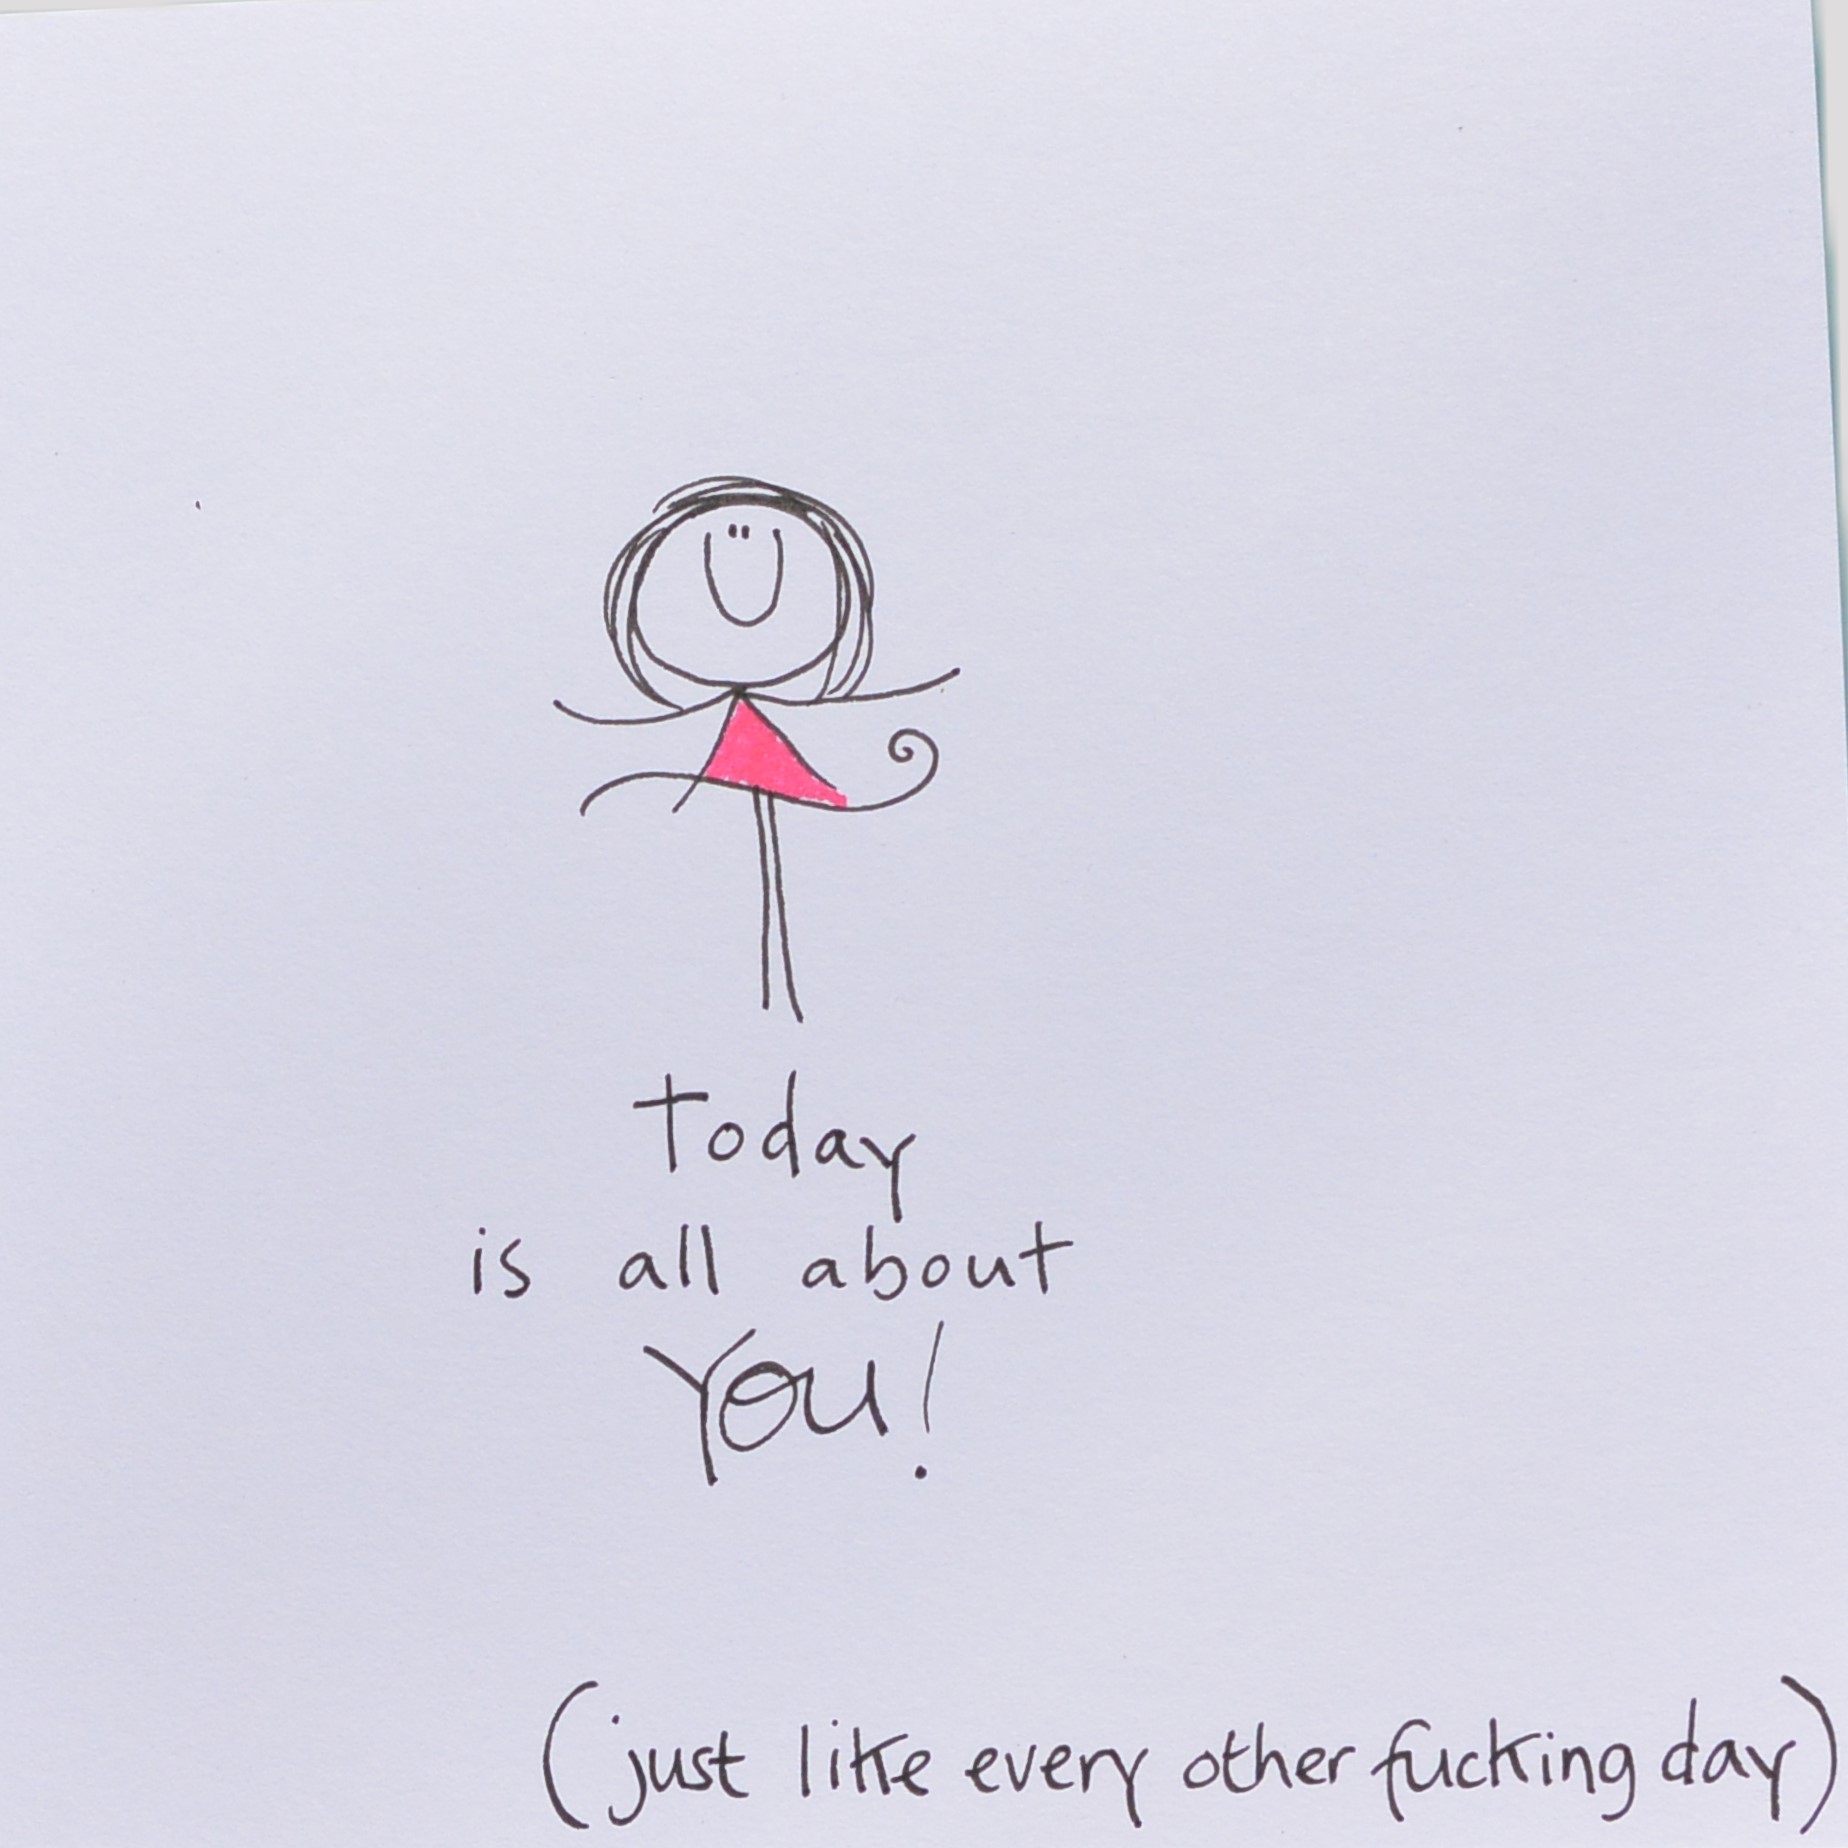 Today
is all about
YOU!
(just like every other fucking day)